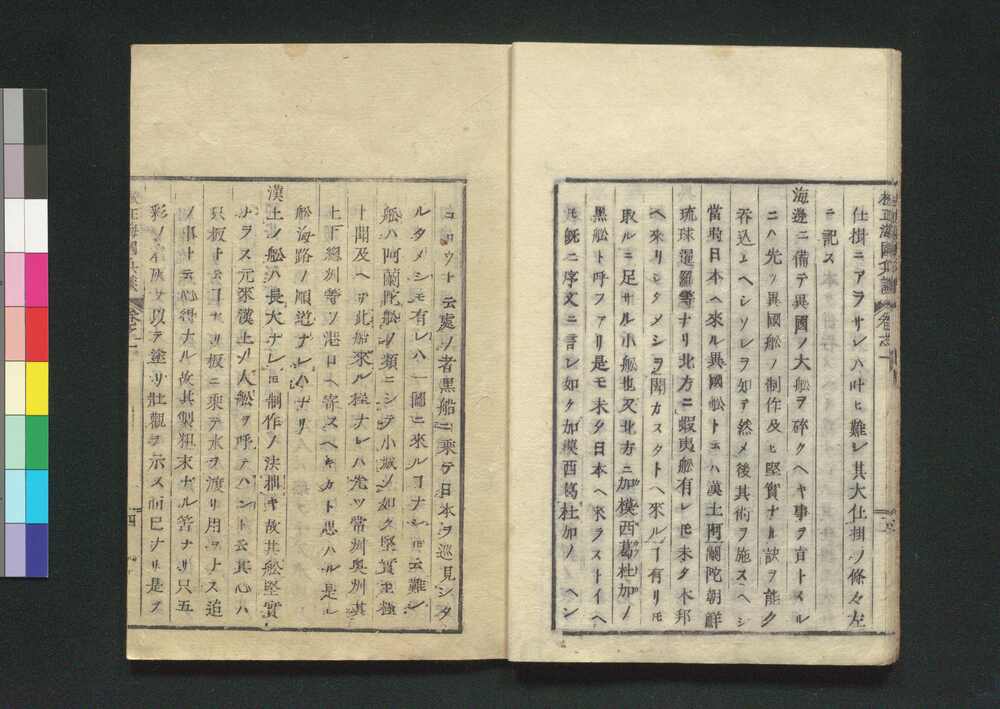 仕掛ニアラサレハ叶ヒ難レ其大仕掛ノ條々左
ニ記ス
海邊ニ備テ異國ノ大舩ヲ碎クヘキ事ヲ肓トスル
ニハ先ツ異國舩ノ制作及ヒ堅實ナル訣ヲ能ク
呑込ムヘシソレヲ知テ然メ後其術ヲ施スヘシ
當時日本ヘ來ル異國舩トテハ漢土阿蘭陀朝鮮
琉球暹羅等ナリ北方ニ蝦夷舩有レモ未タ本邦
ヘ來リシタメシヲ聞カスタトヘ來ルヿ有リモ
取ルニ足サル小舩也又北方ニ加模西葛杜加ノ
黒舩ト呼フアリ是モ未タ日本ヘ來ラストイヘ
𪜈既ニ序文ニ言レ如ク加模西葛杜加ノヘン
コロウト云處ノ者黒船ニ乗テ日本ヲ巡見シタ
ルタメシモ有レハ一圖ニ來ルヿナシ𪜈云難シ
舩ハ阿蘭陀舩ノ類ニシテ小城ノ如ク堅實至極
ト聞及ヘリ此船來ル程ナレハ先ツ常州奥州其
上下總州等ノ港口ヘ寄スヘキカト思ハル是レ
舩海路ノ順道ナレハナリ
漢土ノ舩ハ長大ナレ𪜈制作ノ法拙キ故其舩堅實
ナラス元來漢土ノ人舩ヲ呼テハント云其心ハ
只板ト云ヿナリ板ニ乗テ水ヲ渡リ用ヲナス迠
ノ事ト云心得ナル故其製粗末ナル筈ナリ只五
彩ノ以テ塗リ壯觀ヲ示ス而已ナリ是ヲ
校正海國兵談 卷之一
四